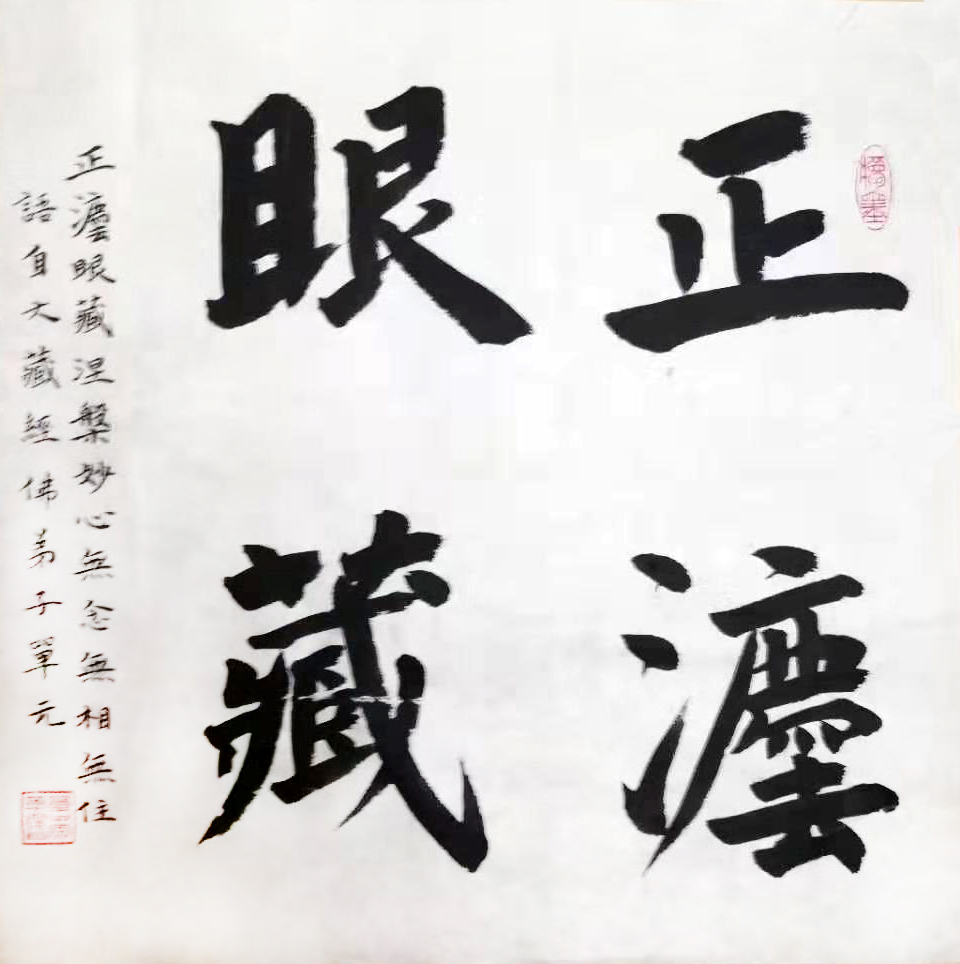 正灋
眼藏
正灋眼藏涅槃妙心無念無相無住
語自大藏經佛弟子單元